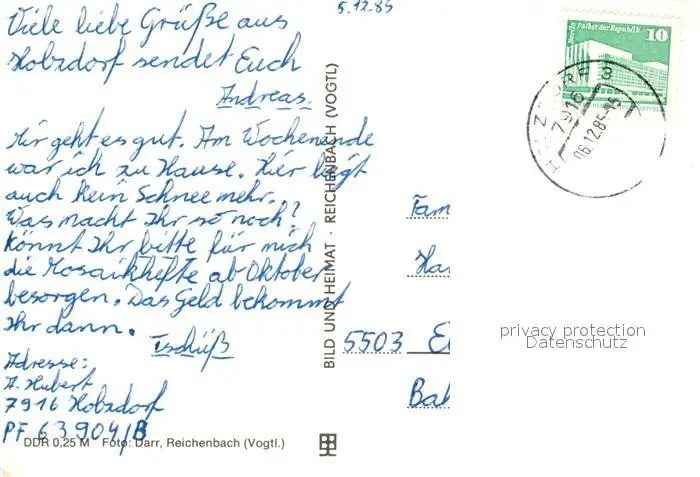 5.12.85
Viele liebe Grüße aus
Holzdorf sendet Euch
Andreas.
Mir geht es gut. Am Wochenende
war ich zu Hause. Hier liegt
auch kein Schnee mehr.
Was macht Ihr so noch?
Könnt Ihr bitte für mich
die Mosaikhefte ab Oktober
besorgen. Das Geld bekommt
Ihr dann.
Tschüß
Adresse:
A. Hubert
7916 Holzdorf
PF 63904/B
DDR 0,25 M Foto: Darr, Reichenbach (Vogtl.)
BILD UND HEIMAT · REICHENBACH (VOGTL)
Berlin, Palast der Republik
10
7916
06.12.85-15
Fam
Ha
5503 E
Bah
privacy protection
Datenschutz